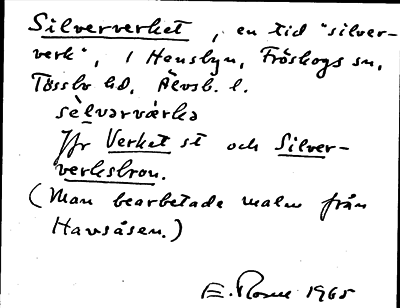 Silververket, en tid "silver-
verk", i Hensbyn, Fröskogs sn,
Tössbo hd, Älvsb. l.
sèlvərværkə
Jfr Verket st och Silver-
verksbron.
(Man bearbetade malm från
Havsåsen.)
E. Rosell 1965